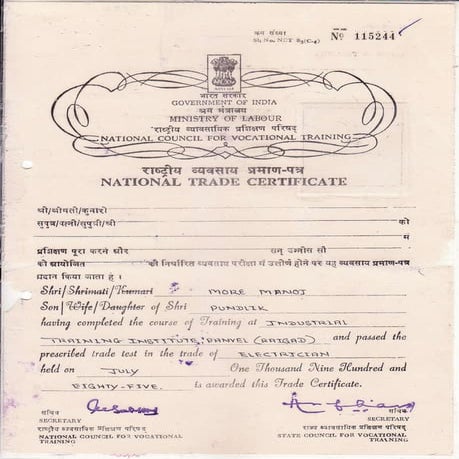 क्रम संख्या
Sl. No. NCT 83(C-4) No 115244
भारत सरकार
GOVERNMENT OF INDIA
श्रम मंत्रालय
MINISTRY OF LABOUR
राष्ट्रीय व्यवसायिक प्रशिक्षण परिषद्
NATIONAL COUNCIL FOR VOCATIONAL TRAINING
राष्ट्रीय व्यवसाय प्रमाण-पत्र
NATIONAL TRADE CERTIFICATE
श्री/श्रीमती/कुमारी
सुपुत्र/पत्नी/सुपुत्री/श्री को
में
प्रशिक्षण पूरा करने और सन् उन्नीस सौ
को आयोजित की निर्धारित व्यवसाय परीक्षा में उत्तीर्ण होने पर यह व्यवसाय प्रमाण-पत्र
प्रदान किया जाता है।
Shri/Shrimati/Kumari MORE MANOJ
Son/Wife/Daughter of Shri PUNDLIK
having completed the course of Training at INDUSTRIAL
TRAINING INSTITUTE PANVEL (RAIGAD) and passed the
prescribed trade test in the trade of ELECTRICIAN
held on JULY One Thousand Nine Hundred and
EIGHTY-FIVE. is awarded this Trade Certificate.
सचिव
SECRETARY
राष्ट्रीय व्यवसायिक प्रशिक्षण परिषद्
NATIONAL COUNCIL FOR VOCATIONAL
TRAINING
सचिव
SECRETARY
राज्य व्यवसायिक प्रशिक्षण परिषद्
STATE COUNCIL FOR VOCATIONAL
TRAINING